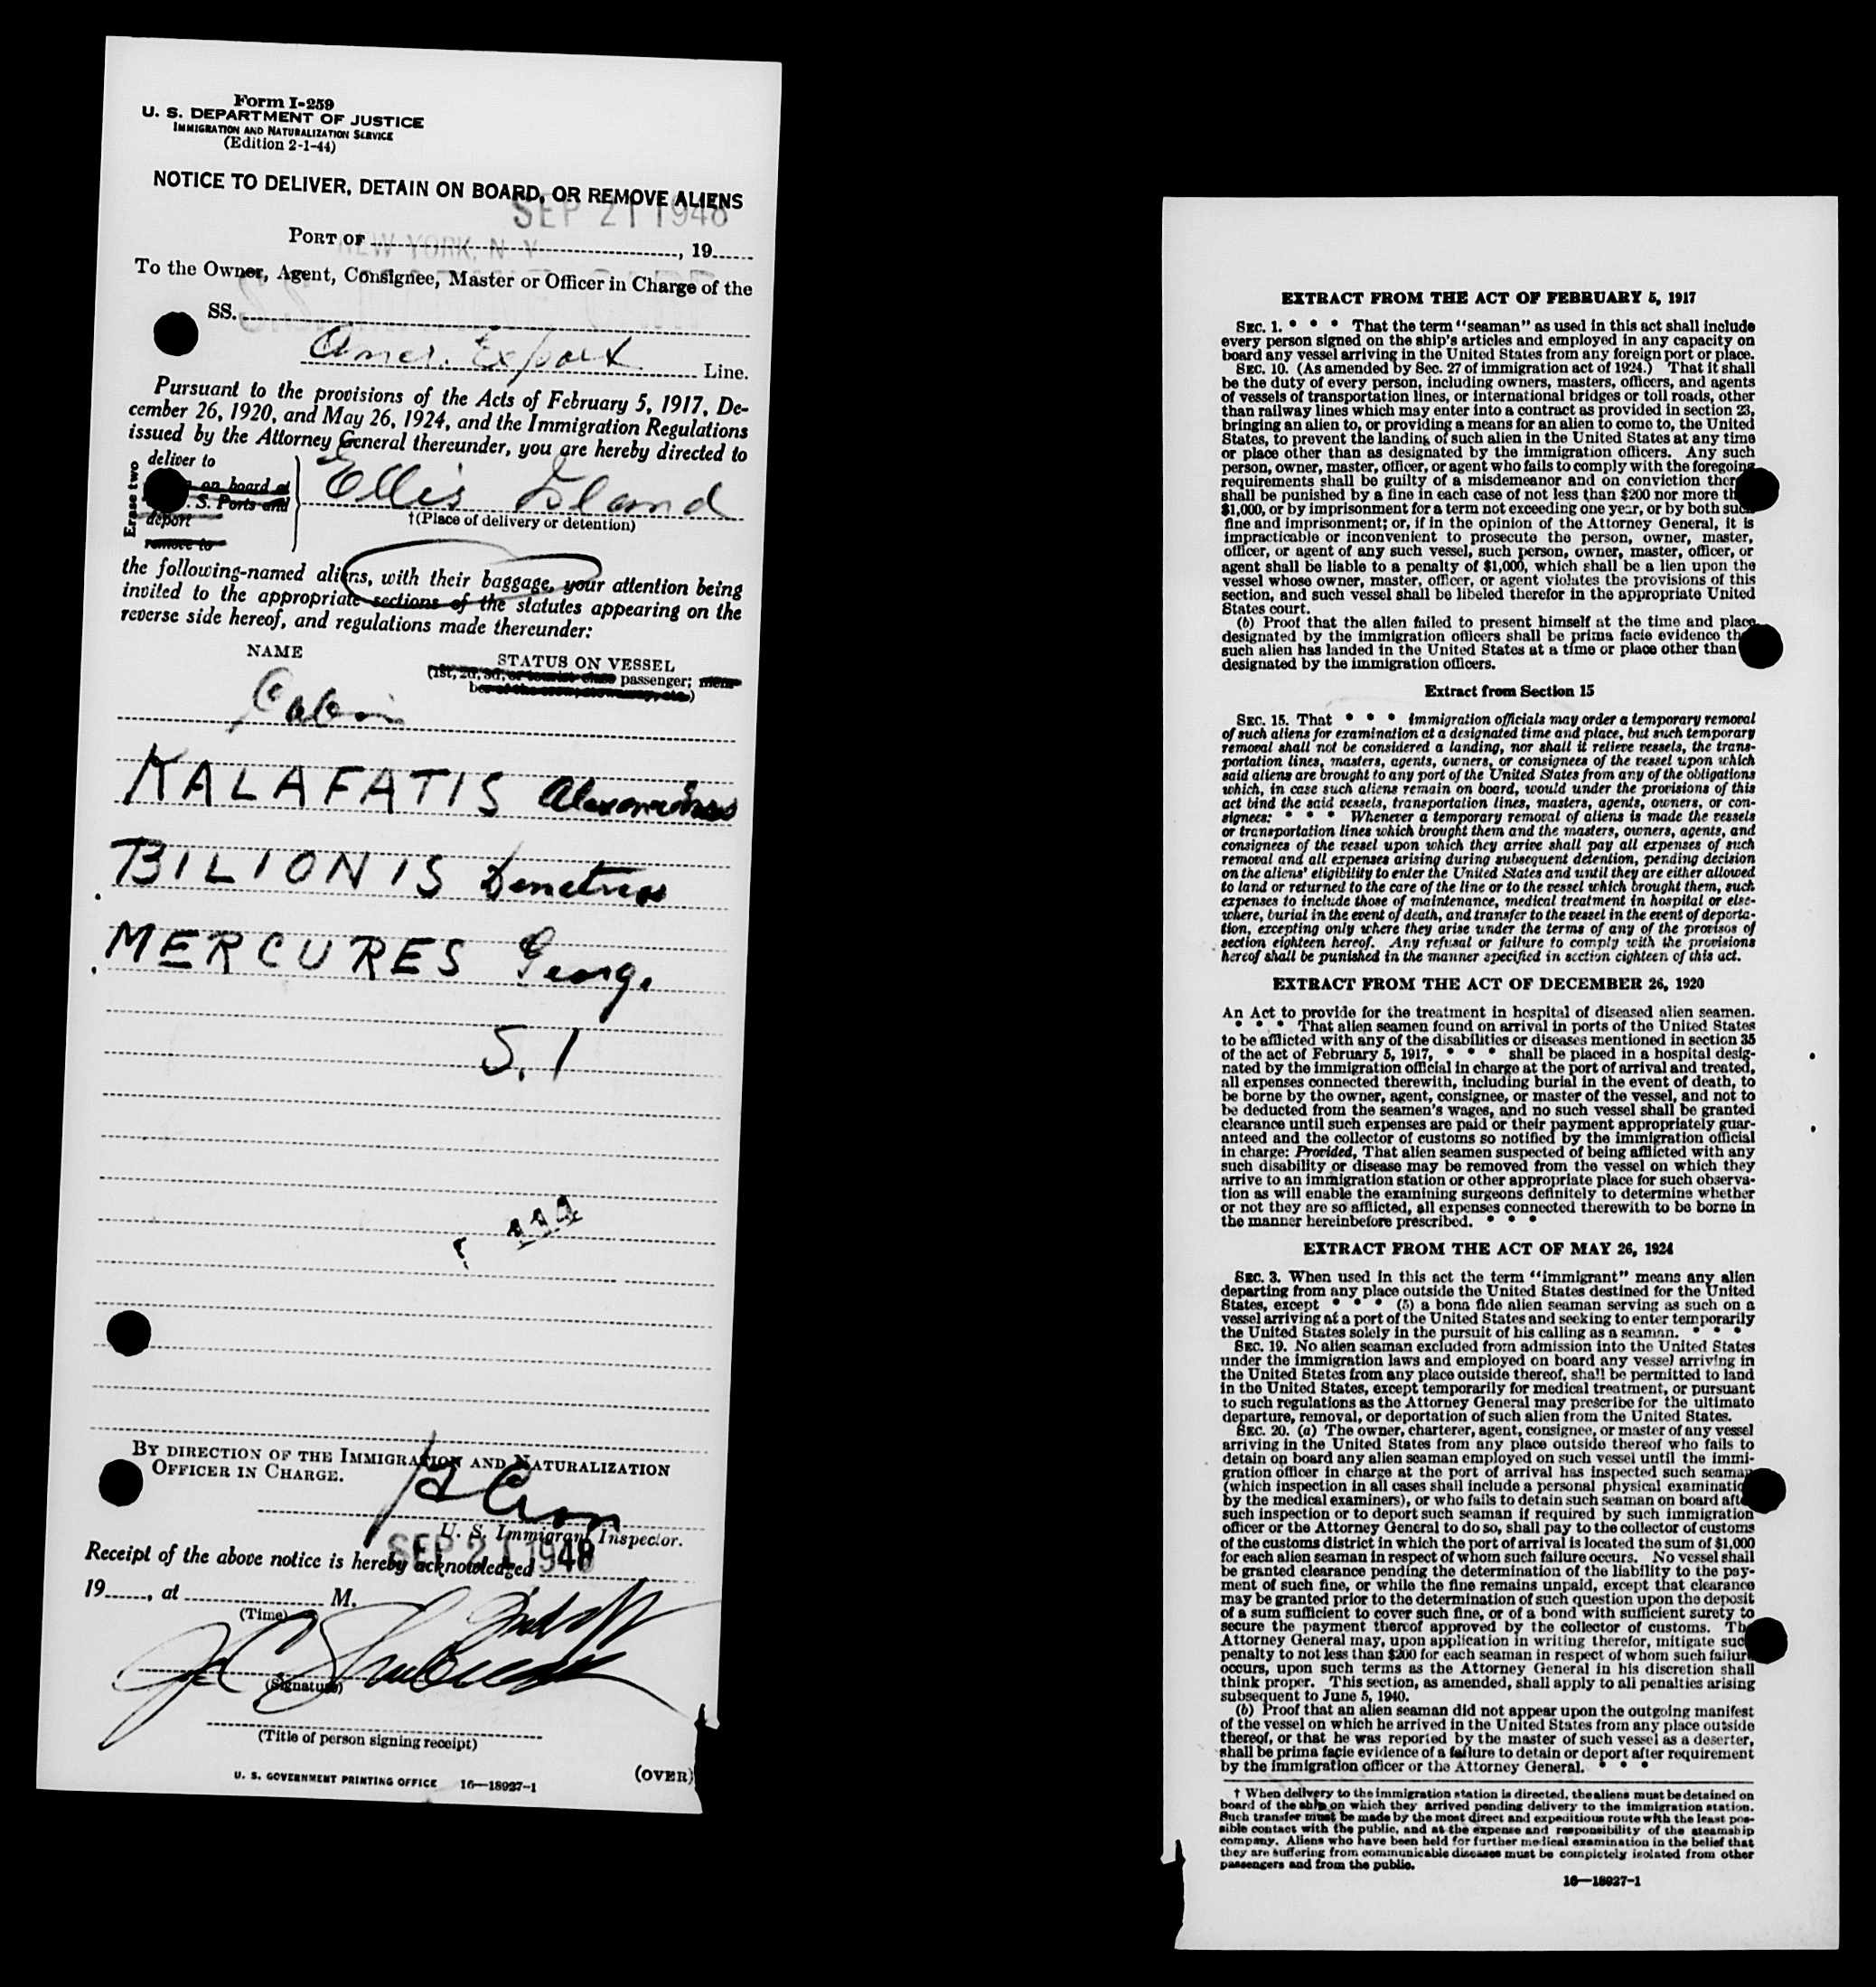 Form I-259
U. S. DEPARTMENT OF JUSTICE
IMMIGRATION AND NATURALIZATION SERVICE
(Edition 2-1-44)
NOTICE TO DELIVER, DETAIN ON BOARD, OR REMOVE ALIENS
SEP 21 1948
PORT OF NEW YORK, N. Y. , 19
To the Owner, Agent, Consignee, Master or Officer in Charge of the
SS.
Amer. Export Line.
Pursuant to the provisions of the Acts of February 5, 1917, De-
cember 26, 1920, and May 26, 1924, and the Immigration Regulations
issued by the Attorney General thereunder, you are hereby directed to
Erase two
deliver to
on board at
S. Ports and
deport
remove to
Ellis Island
†(Place of delivery or detention)
the following-named aliens, with their baggage, your attention being
invited to the appropriate sections of the statutes appearing on the
reverse side hereof, and regulations made thereunder:
NAME STATUS ON VESSEL
(1st, 2d, 3d, or tourist class passenger; mem-
ber of the crew, stowaway, etc.)
Cabin
KALAFATIS
BILIONIS
MERCURES George
S. 1
BY DIRECTION OF THE IMMIGRATION AND NATURALIZATION
OFFICER IN CHARGE.
U. S. Immigrant Inspector.
SEP 21 1948
Receipt of the above notice is hereby acknowledged
19 , at M.
(Time)
(Signature)
(Title of person signing receipt)
U. S. GOVERNMENT PRINTING OFFICE 16—18927-1
(OVER)
EXTRACT FROM THE ACT OF FEBRUARY 5, 1917
SEC. 1. * * * That the term "seaman" as used in this act shall include
every person signed on the ship's articles and employed in any capacity on
board any vessel arriving in the United States from any foreign port or place.
SEC. 10. (As amended by Sec. 27 of immigration act of 1924.) That it shall
be the duty of every person, including owners, masters, officers, and agents
of vessels of transportation lines, or international bridges or toll roads, other
than railway lines which may enter into a contract as provided in section 23,
bringing an alien to, or providing a means for an alien to come to, the United
States, to prevent the landing of such alien in the United States at any time
or place other than as designated by the immigration officers. Any such
person, owner, master, officer, or agent who fails to comply with the foregoing
requirements shall be guilty of a misdemeanor and on conviction ther
shall be punished by a fine in each case of not less than $200 nor more th
$1,000, or by imprisonment for a term not exceeding one year, or by both such
fine and imprisonment; or, if in the opinion of the Attorney General, it is
impracticable or inconvenient to prosecute the person, owner, master,
officer, or agent of any such vessel, such person, owner, master, officer, or
agent shall be liable to a penalty of $1,000, which shall be a lien upon the
vessel whose owner, master, officer, or agent violates the provisions of this
section, and such vessel shall be libeled therefor in the appropriate United
States court.
(b) Proof that the alien failed to present himself at the time and place
designated by the immigration officers shall be prima facie evidence th
such alien has landed in the United States at a time or place other than
designated by the immigration officers.
Extract from Section 15
SEC. 15. That * * * immigration officials may order a temporary removal
of such aliens for examination at a designated time and place, but such temporary
removal shall not be considered a landing, nor shall it relieve vessels, the trans-
portation lines, masters, agents, owners, or consignees of the vessel upon which
said aliens are brought to any port of the United States from any of the obligations
which, in case such aliens remain on board, would under the provisions of this
act bind the said vessels, transportation lines, masters, agents, owners, or con-
signees: * * * Whenever a temporary removal of aliens is made the vessels
or transportation lines which brought them and the masters, owners, agents, and
consignees of the vessel upon which they arrive shall pay all expenses of such
removal and all expenses arising during subsequent detention, pending decision
on the aliens' eligibility to enter the United States and until they are either allowed
to land or returned to the care of the line or to the vessel which brought them, such
expenses to include those of maintenance, medical treatment in hospital or else-
where, burial in the event of death, and transfer to the vessel in the event of deporta-
tion, excepting only where they arise under the terms of any of the provisos of
section eighteen hereof. Any refusal or failure to comply with the provisions
hereof shall be punished in the manner specified in section eighteen of this act.
EXTRACT FROM THE ACT OF DECEMBER 26, 1920
An Act to provide for the treatment in hospital of diseased alien seamen.
* * * That alien seamen found on arrival in ports of the United States
to be afflicted with any of the disabilities or diseases mentioned in section 35
of the act of February 5, 1917, * * * shall be placed in a hospital desig-
nated by the immigration official in charge at the port of arrival and treated,
all expenses connected therewith, including burial in the event of death, to
be borne by the owner, agent, consignee, or master of the vessel, and not to
be deducted from the seamen's wages, and no such vessel shall be granted
clearance until such expenses are paid or their payment appropriately guar-
anteed and the collector of customs so notified by the immigration official
in charge: Provided, That alien seamen suspected of being afflicted with any
such disability or disease may be removed from the vessel on which they
arrive to an immigration station or other appropriate place for such observa-
tion as will enable the examining surgeons definitely to determine whether
or not they are so afflicted, all expenses connected therewith to be borne in
the manner hereinbefore prescribed. * * *
EXTRACT FROM THE ACT OF MAY 26, 1924
SEC. 3. When used in this act the term "immigrant" means any alien
departing from any place outside the United States destined for the United
States, except * * * (5) a bona fide alien seaman serving as such on a
vessel arriving at a port of the United States and seeking to enter temporarily
the United States solely in the pursuit of his calling as a seaman. * * *
SEC. 19. No alien seaman excluded from admission into the United States
under the immigration laws and employed on board any vessel arriving in
the United States from any place outside thereof, shall be permitted to land
in the United States, except temporarily for medical treatment, or pursuant
to such regulations as the Attorney General may prescribe for the ultimate
departure, removal, or deportation of such alien from the United States.
SEC. 20. (a) The owner, charterer, agent, consignee, or master of any vessel
arriving in the United States from any place outside thereof who fails to
detain on board any alien seaman employed on such vessel until the immi-
gration officer in charge at the port of arrival has inspected such seaman
(which inspection in all cases shall include a personal physical examinatio
by the medical examiners), or who fails to detain such seaman on board afte
such inspection or to deport such seaman if required by such immigration
officer or the Attorney General to do so, shall pay to the collector of customs
of the customs district in which the port of arrival is located the sum of $1,000
for each alien seaman in respect of whom such failure occurs. No vessel shall
be granted clearance pending the determination of the liability to the pay-
ment of such fine, or while the fine remains unpaid, except that clearance
may be granted prior to the determination of such question upon the deposit
of a sum sufficient to cover such fine, or of a bond with sufficient surety to
secure the payment thereof approved by the collector of customs. The
Attorney General may, upon application in writing therefor, mitigate suc
penalty to not less than $200 for each seaman in respect of whom such failure
occurs, upon such terms as the Attorney General in his discretion shall
think proper. This section, as amended, shall apply to all penalties arising
subsequent to June 5, 1940.
(b) Proof that an alien seaman did not appear upon the outgoing manifest
of the vessel on which he arrived in the United States from any place outside
thereof, or that he was reported by the master of such vessel as a deserter,
shall be prima facie evidence of a failure to detain or deport after requirement
by the immigration officer or the Attorney General. * * *
† When delivery to the immigration station is directed, the aliens must be detained on
board of the ship on which they arrived pending delivery to the immigration station.
Such transfer must be made by the most direct and expeditious route with the least pos-
sible contact with the public, and at the expense and responsibility of the steamship
company. Aliens who have been held for further medical examination in the belief that
they are suffering from communicable diseases must be completely isolated from other
passengers and from the public.
16—18927-1